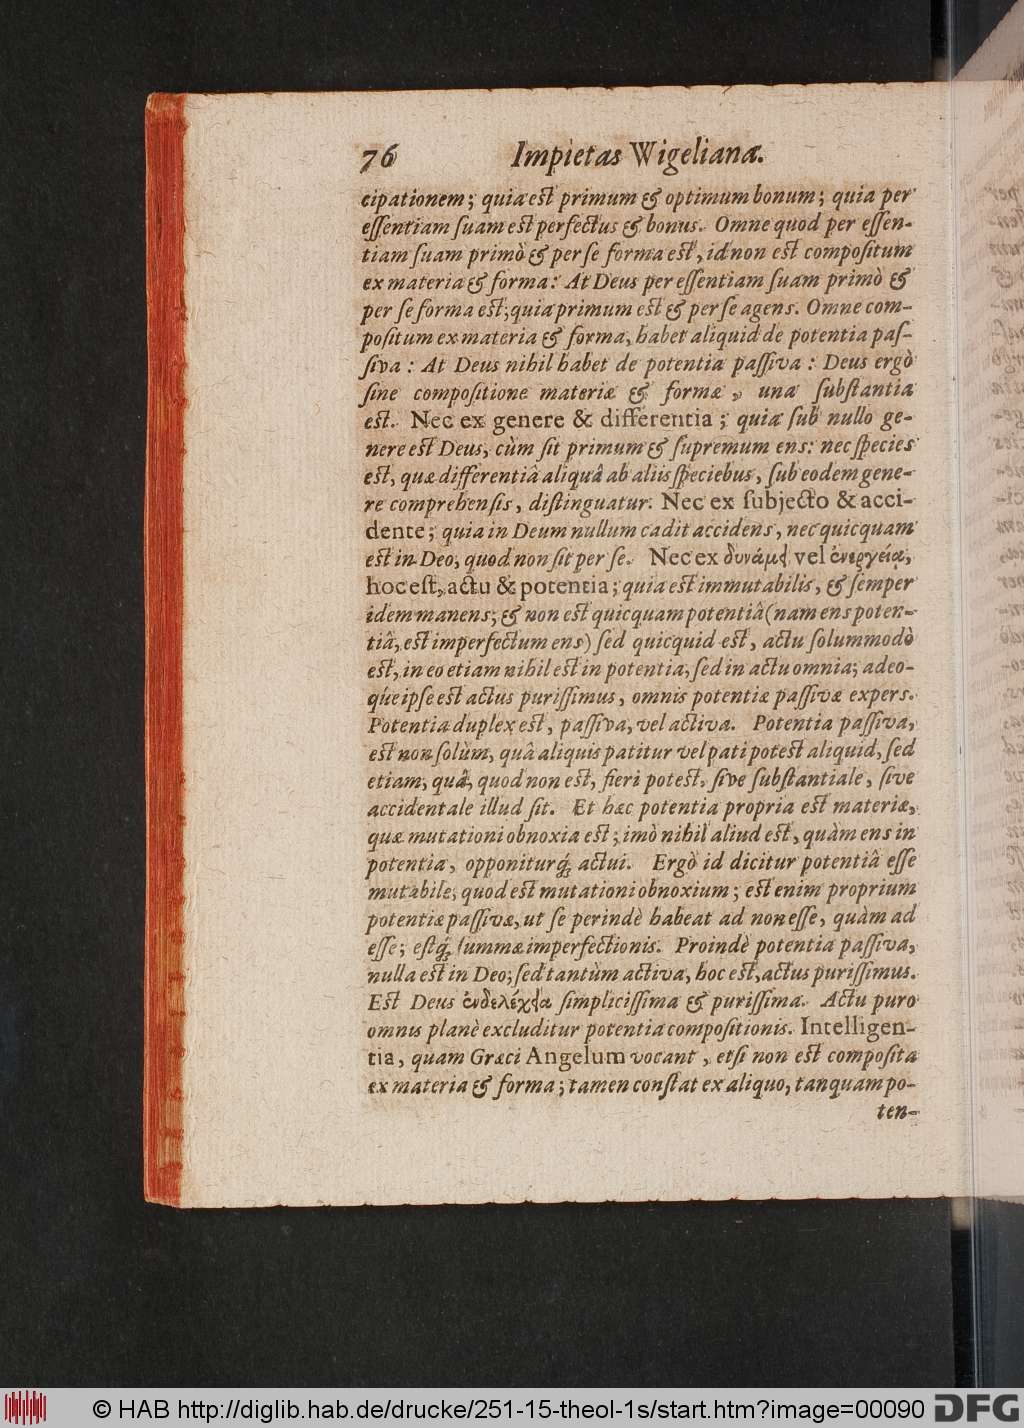 76 Impietas Wigeliana.
cipationem; quia eſt primum & optimum bonum; quia per
eſſentiam ſuam est perfectus & bonus. Omne quod per eſſen-
tiam ſuam primò & per ſe forma est, id non est compoſitum
ex materia & forma: At Deus per eſſentiam ſuam primò &
per ſe forma est; quia primum est & per ſe agens. Omne com-
poſitum ex materia & forma, habet aliquid de potentia paſ-
ſiva: At Deus nihil habet de potentia paſſiva: Deus ergò
ſine compoſitione materiæ & formæ, una ſubſtantia
est. Nec ex genere & differentia; quia ſub nullo ge-
nere est Deus, cùm ſit primum & ſupremum ens: nec ſpecies
est, quæ differentiâ aliquâ ab aliis ſpeciebus, ſub eodem gene-
re comprehenſis, diſtinguatur. Nec ex ſubjecto & acci-
dente; quia in Deum nullum cadit accidens, nec quicquam
est in Deo, quod non ſit per ſe. Nec ex δυνάμει vel ἐνεργείᾳ,
hoc eſt, actu & potentia; quia est immutabilis, & ſemper
idem manens; & non est quicquam potentiâ (nam ens poten-
tiâ, est imperfectum ens) ſed quicquid est, actu ſolummodò
est, in eo etiam nihil est in potentia, ſed in actu omnia; adeo-
q́ue ipſe est actus puriſſimus, omnis potentiæ paſſivæ expers.
Potentia duplex est, paſſiva, vel activa. Potentia paſſiva,
est non ſolùm, quâ aliquis patitur vel pati potest aliquid, ſed
etiam, quâ, quod non est, fieri potest, ſive ſubſtantiale, ſive
accidentale illud ſit. Et hæc potentia propria est materiæ,
quæ mutationi obnoxia est; imò nihil aliud est, quàm ens in
potentia, opponiturq́; actui. Ergò id dicitur potentiâ eſſe
mutabile, quod est mutationi obnoxium; est enim proprium
potentiæ paſſivæ, ut ſe perindè habeat ad non eſſe, quàm ad
eſſe; eſtq́; ſummæ imperfectionis. Proindè potentia paſſiva,
nulla est in Deo; ſed tantùm activa, hoc est, actus puriſſimus.
Est Deus ἐνδελέχεια ſimpliciſſima & puriſſima. Actu puro
omnis planè excluditur potentia compoſitionis. Intelligen-
tia, quam Græci Angelum vocant, etſi non est compoſita
ex materia & forma; tamen conſtat ex aliquo, tanquam po-
ten-
© HAB http://diglib.hab.de/drucke/251-15-theol-1s/start.htm?image=00090
DFG